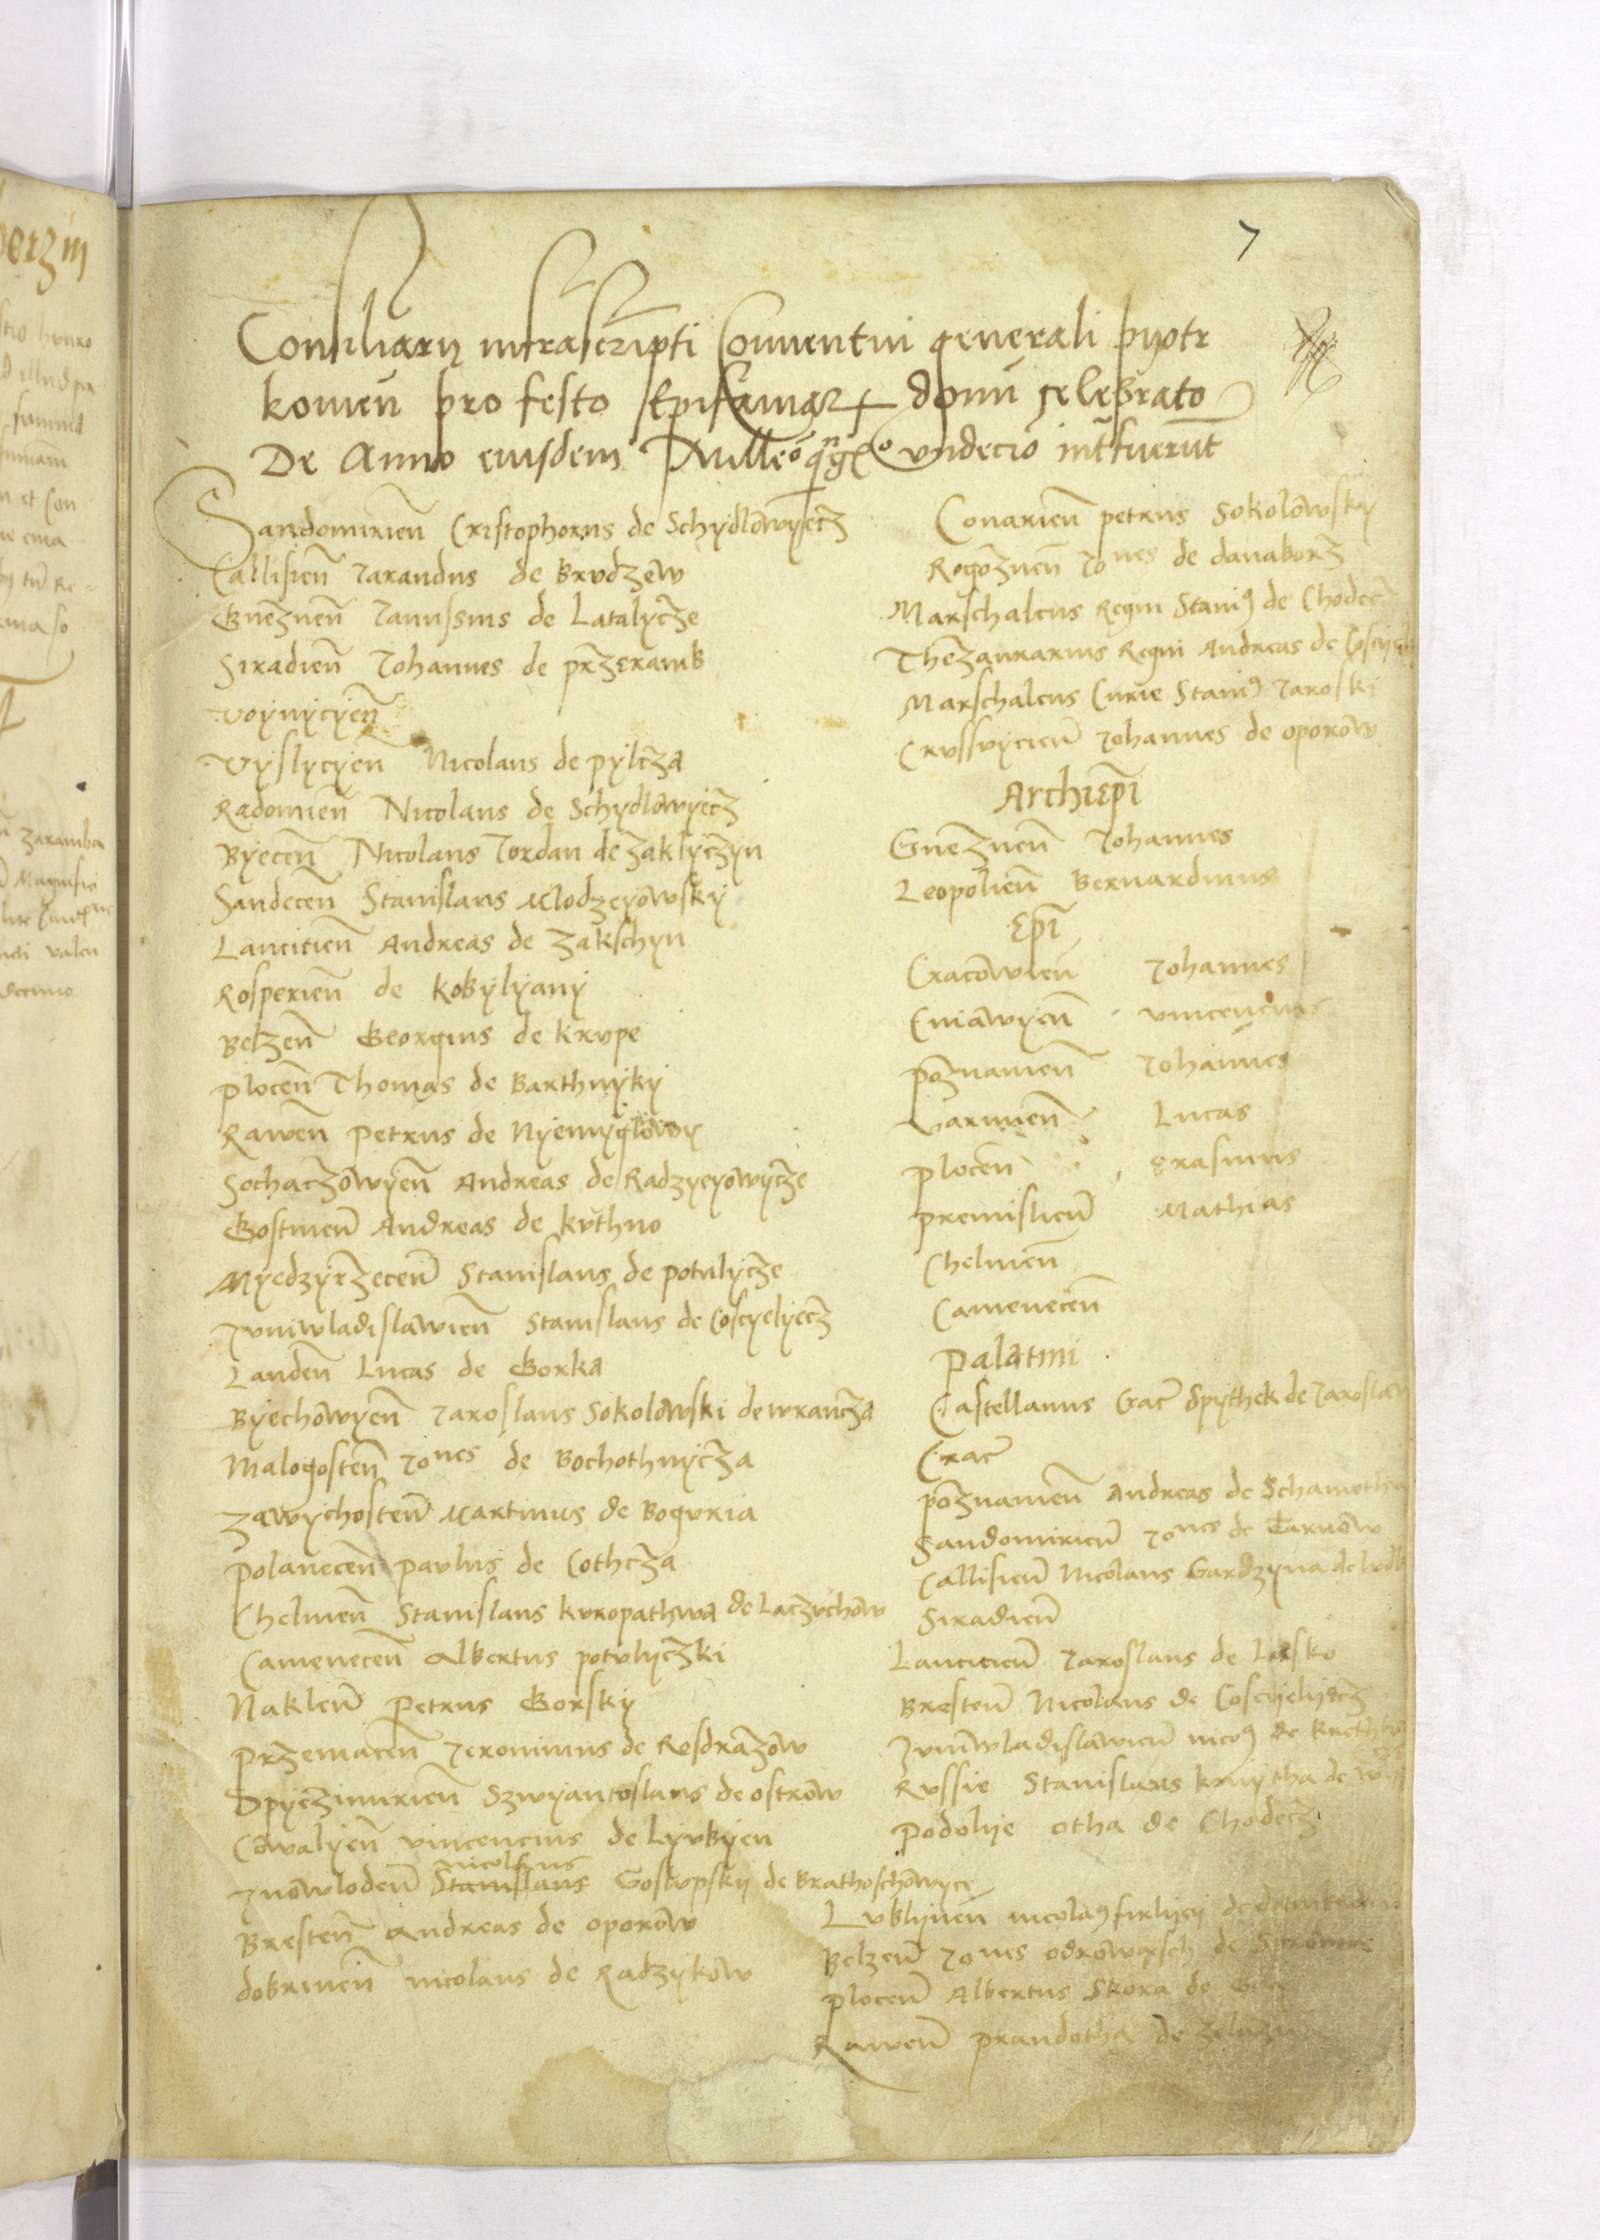 7
Consiliarij infrascripti Conventui generali piotr
koviēn pro festo Epifaniar domī celebrato
De Anno eiusdem Mille° qngē° undecīo intfuerūt
Sandomiriēn Cristophorus de Schydlōwyecz
Callisiēn Jarandus de Brvdzēw
Gnēznēn Janussius de Latalycze
Siradiēn Johannes de przeramb
Voynycyēn
Vyslycyēn Nicolaus de pylcza
Radomiēn Nicolaus de Schydlōwyecz
Byecēn Nicolaus Jordan de zaklyczyn
Sandecēn Stanislaus Mlodzeyōwsky
Lanciciēn Andreas de zakschyn
Rosperiēn de kobylyany
Belzēn Georgius de krvpe
Plocēn Thomas de Barthnyky
Rawēn Petrus de Nyemyglōwy
Sochaczōwyēn Andreas de Radzyeyōwycze
Gostinēn Andreas de kvthno
Myedzyrzecēn Stanislaus de potulycze
Jvniwladislawiēn Stanislaus de Coscyelyecz
Landēn Lucas de Gorka
Byechōwyēn Jaroslaus Sokolōwski de wrancza
Malogostēn Jones de Bochothnycza
Zawychostēn Martinus de Bogvria
Polanecēn pavlus de Cothcza
Chelmēn Stanislaus kvropathwa de Laczvchōw
Camenecēn Albertus potvlyczki
Naklēn Petrus Gorsky
Przemacēn Jeronimus de Rosdrazōw
Spyczimiriēn Szwyantoslaus de ostrōw
Cōwalyēn vincencius de Lyvbyen
nicolaus
Jnōwlodēn Stanislaus Goslvpsky de Brathoschōwyce
Brestēn Andreas de oporōw
dobrinēn nicolaus de Radzykōw
Conariēn petrus Sokolōwsky
Rogoznēn Jones de danaborz
Marschalcus Regni Stani9 de Chodecz
Thezaurarius Regni Andreas de
Marschalcus Curie Stani9 Jaroski
Crvssvyciēn Johannes de oporōw
Archiepī
Gnēznēn Johannes
Leopoliēn Bernardinus
Epī
Cracōwiēn Johannes
Cuiāwyēn vincencius
Pōznaniēn Johannes
Varmiēn Lucas
Plocēn Erasmus
Premisliēn Mathias
Chelmēn
Camenecēn
Palatini
Castellanus Crac Spythek de Jaroslaw
Crac
Pōznaniēn Andreas de
Sandomiriēn Jones de Tarnōw
Callisiēn Nicolaus Gardzyna de
Siradiēn
Lanciciēn Jaroslaus de Lasko
Brestēn Nicolaus de Coscyelyecz
Jvniwladislāwiēn nico9 de
Rvssie Stanislaus kmytha de
Podolije otha de Chodecz
Lvblinēn nicola9 firlyey de
Belzēn Jones odrōwasch de
Plocēn Albertus Skora de
Rawēn prandotha de